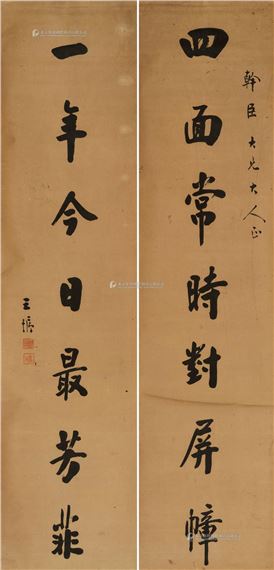 幹臣大兄大人正
四面常時對屏幛
一年今日最芳菲
王憬